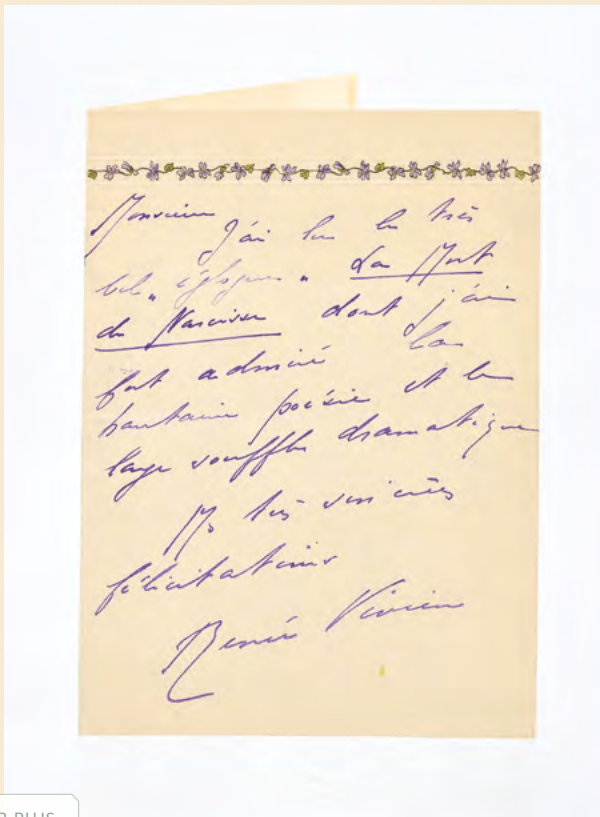 Monsieur
J'ai lu la très
bel„ églogue „ La Mort
de Narcisse dont j'ai
fort admiré la
hautaine poésie et le
large souffle dramatique
Mes très sincères
félicitations
Renée Vivien
PLUS